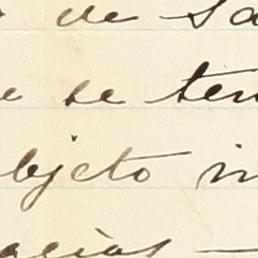 de sa
e se ten
bjeto in
acias —